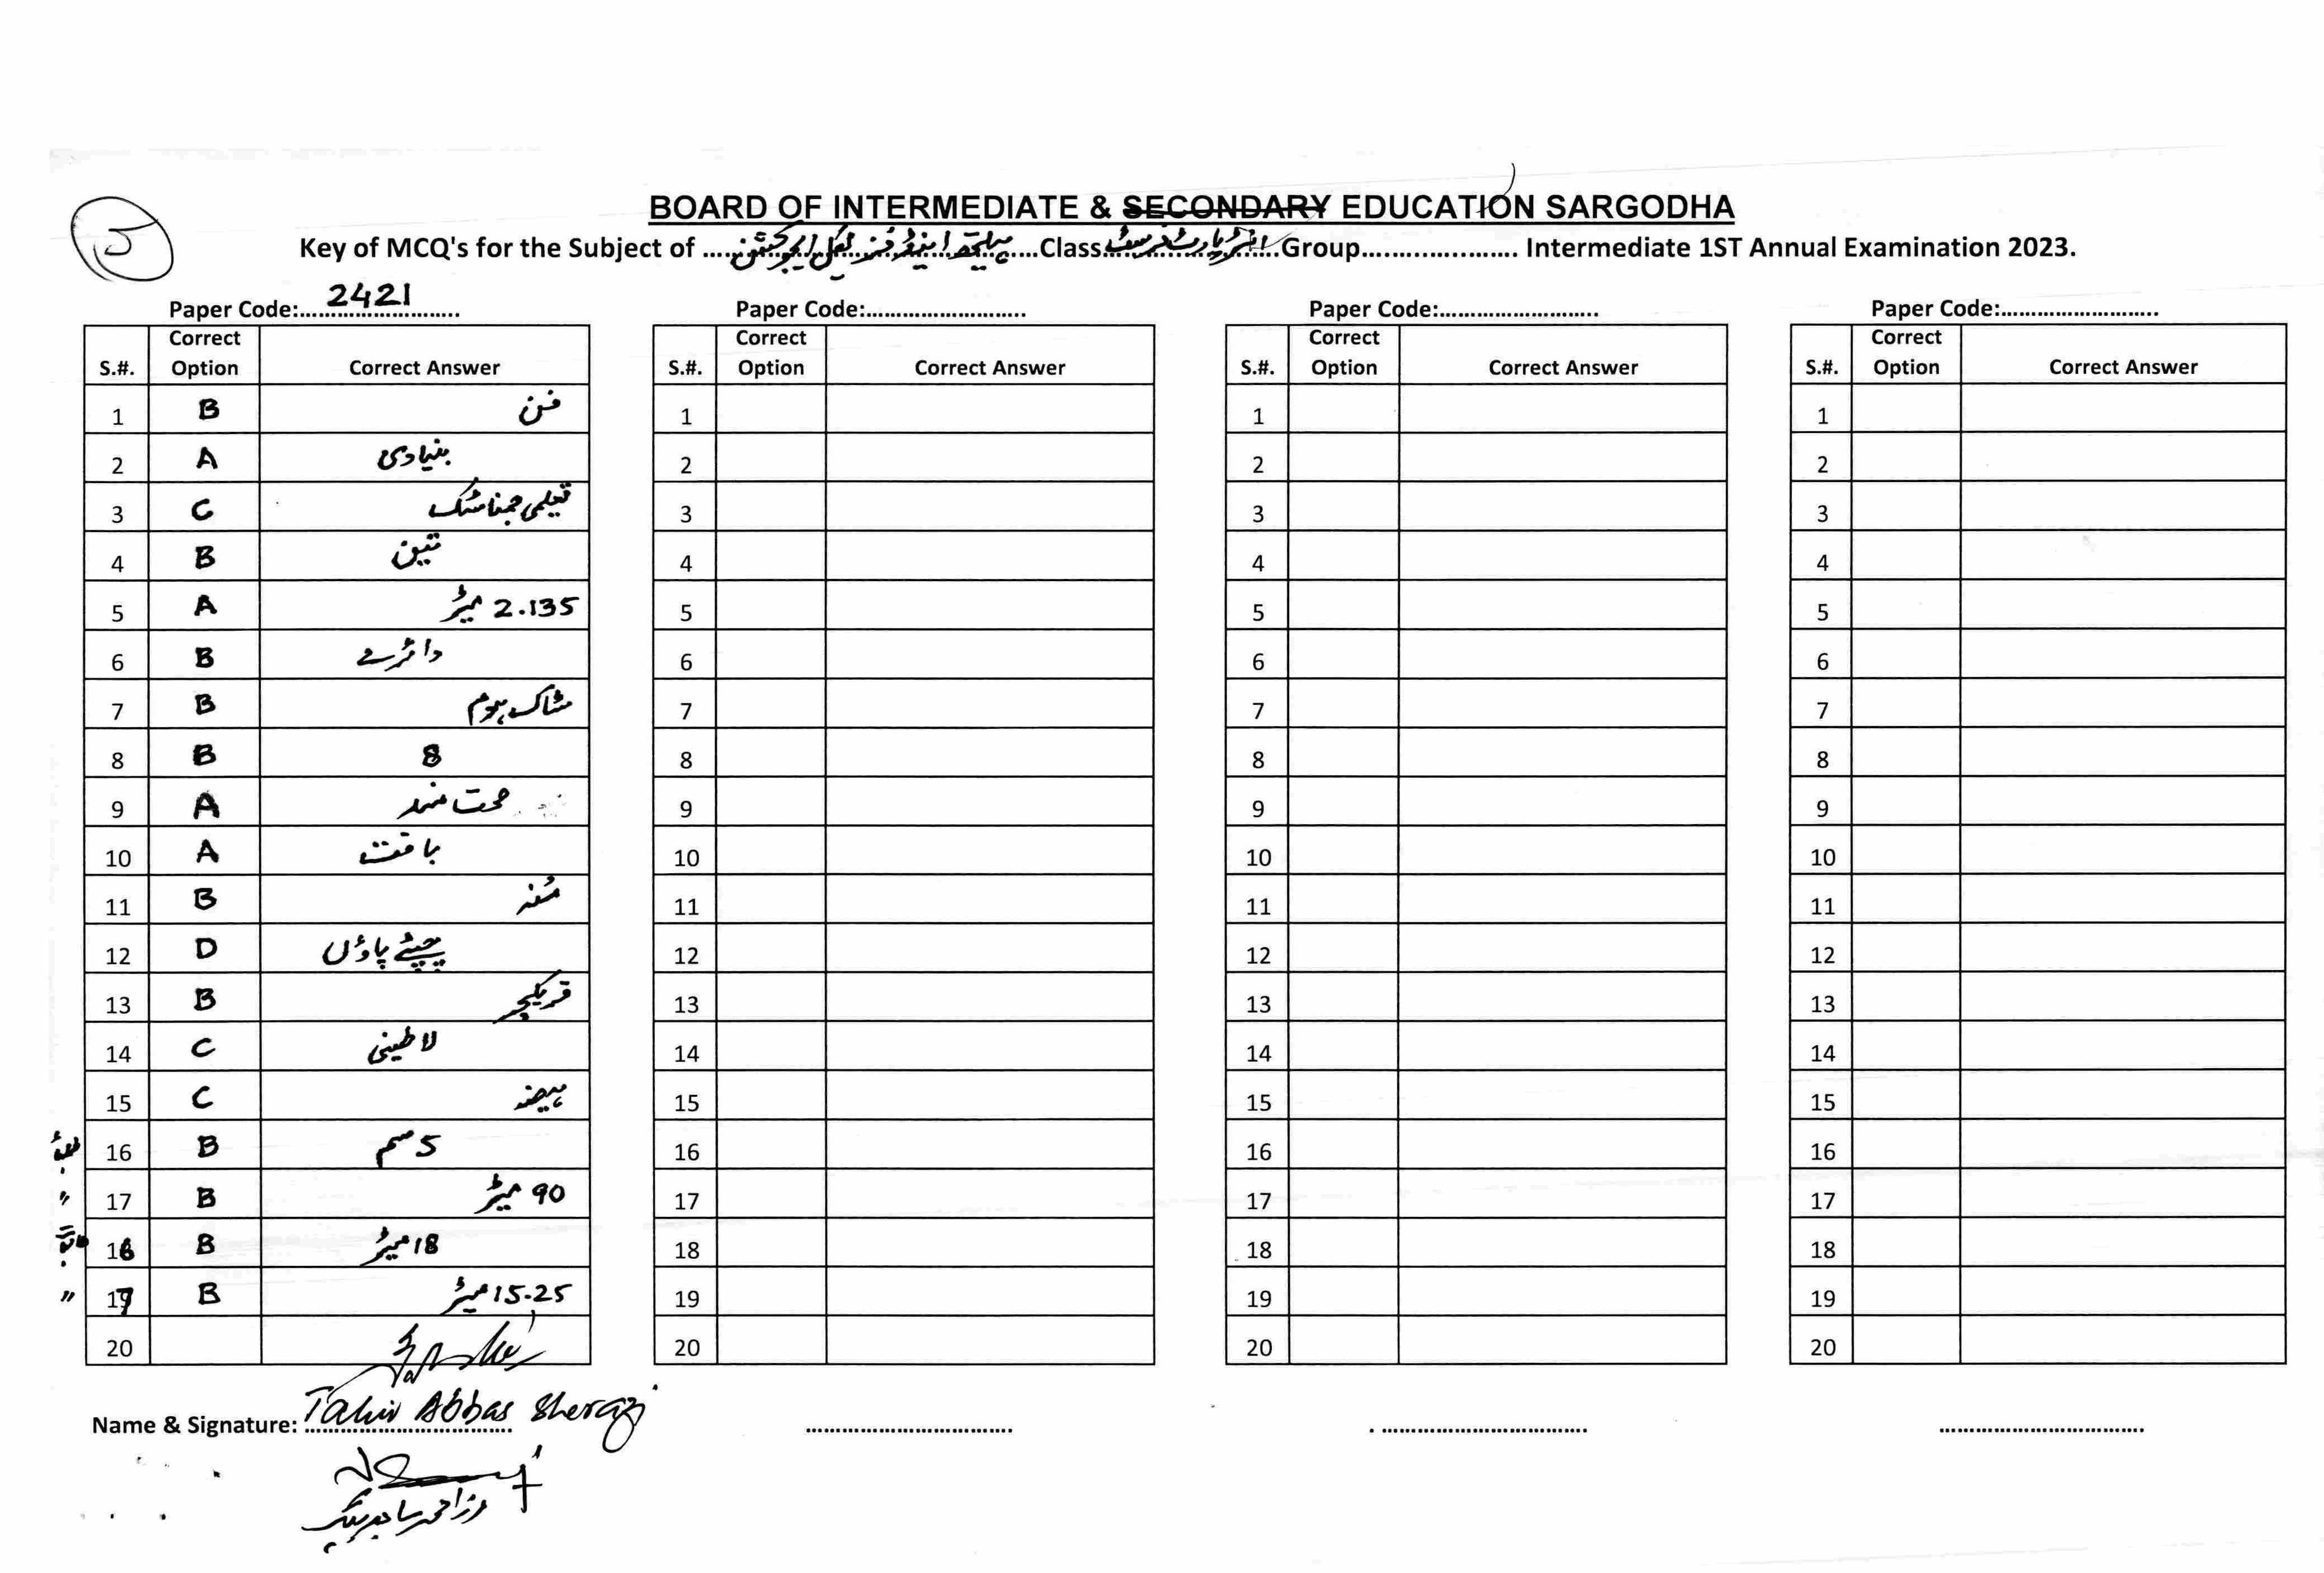 5
BOARD OF INTERMEDIATE & SECONDARY EDUCATION SARGODHA
Key of MCQ's for the Subject of ......ہیلتھ اینڈ فزیکل ایجوکیشن......Class......انٹر پارٹ فرسٹ......Group..................... Intermediate 1ST Annual Examination 2023.
Paper Code:....2421.... Paper Code:........................... Paper Code:........................... Paper Code:...........................
S.#. Correct Option Correct Answer S.#. Correct Option Correct Answer S.#. Correct Option Correct Answer S.#. Correct Option Correct Answer
1 B فن 1 1 1
2 A بنیادی 2 2 2
3 C تعلیمی جمناسٹک 3 3 3
4 B تین 4 4 4
5 A 2.135 میٹر 5 5 5
6 B دائرے 6 6 6
7 B سٹاک ہوم 7 7 7
8 B 8 8 8 8
9 A صحت مند 9 9 9
10 A بافت 10 10 10
11 B مُنہ 11 11 11
12 D چپٹے پاؤں 12 12 12
13 B فریکچر 13 13 13
14 C لاطینی 14 14 14
15 C ہیضہ 15 15 15
طلباء 16 B 5 سم 16 16 16
〃 17 B 90 میٹر 17 17 17
16 B 18 میٹر 18 18 18
〃 17 B 15.25 میٹر 19 19 19
20 20 20 20
Name & Signature: Tahir Abbas Sherazi